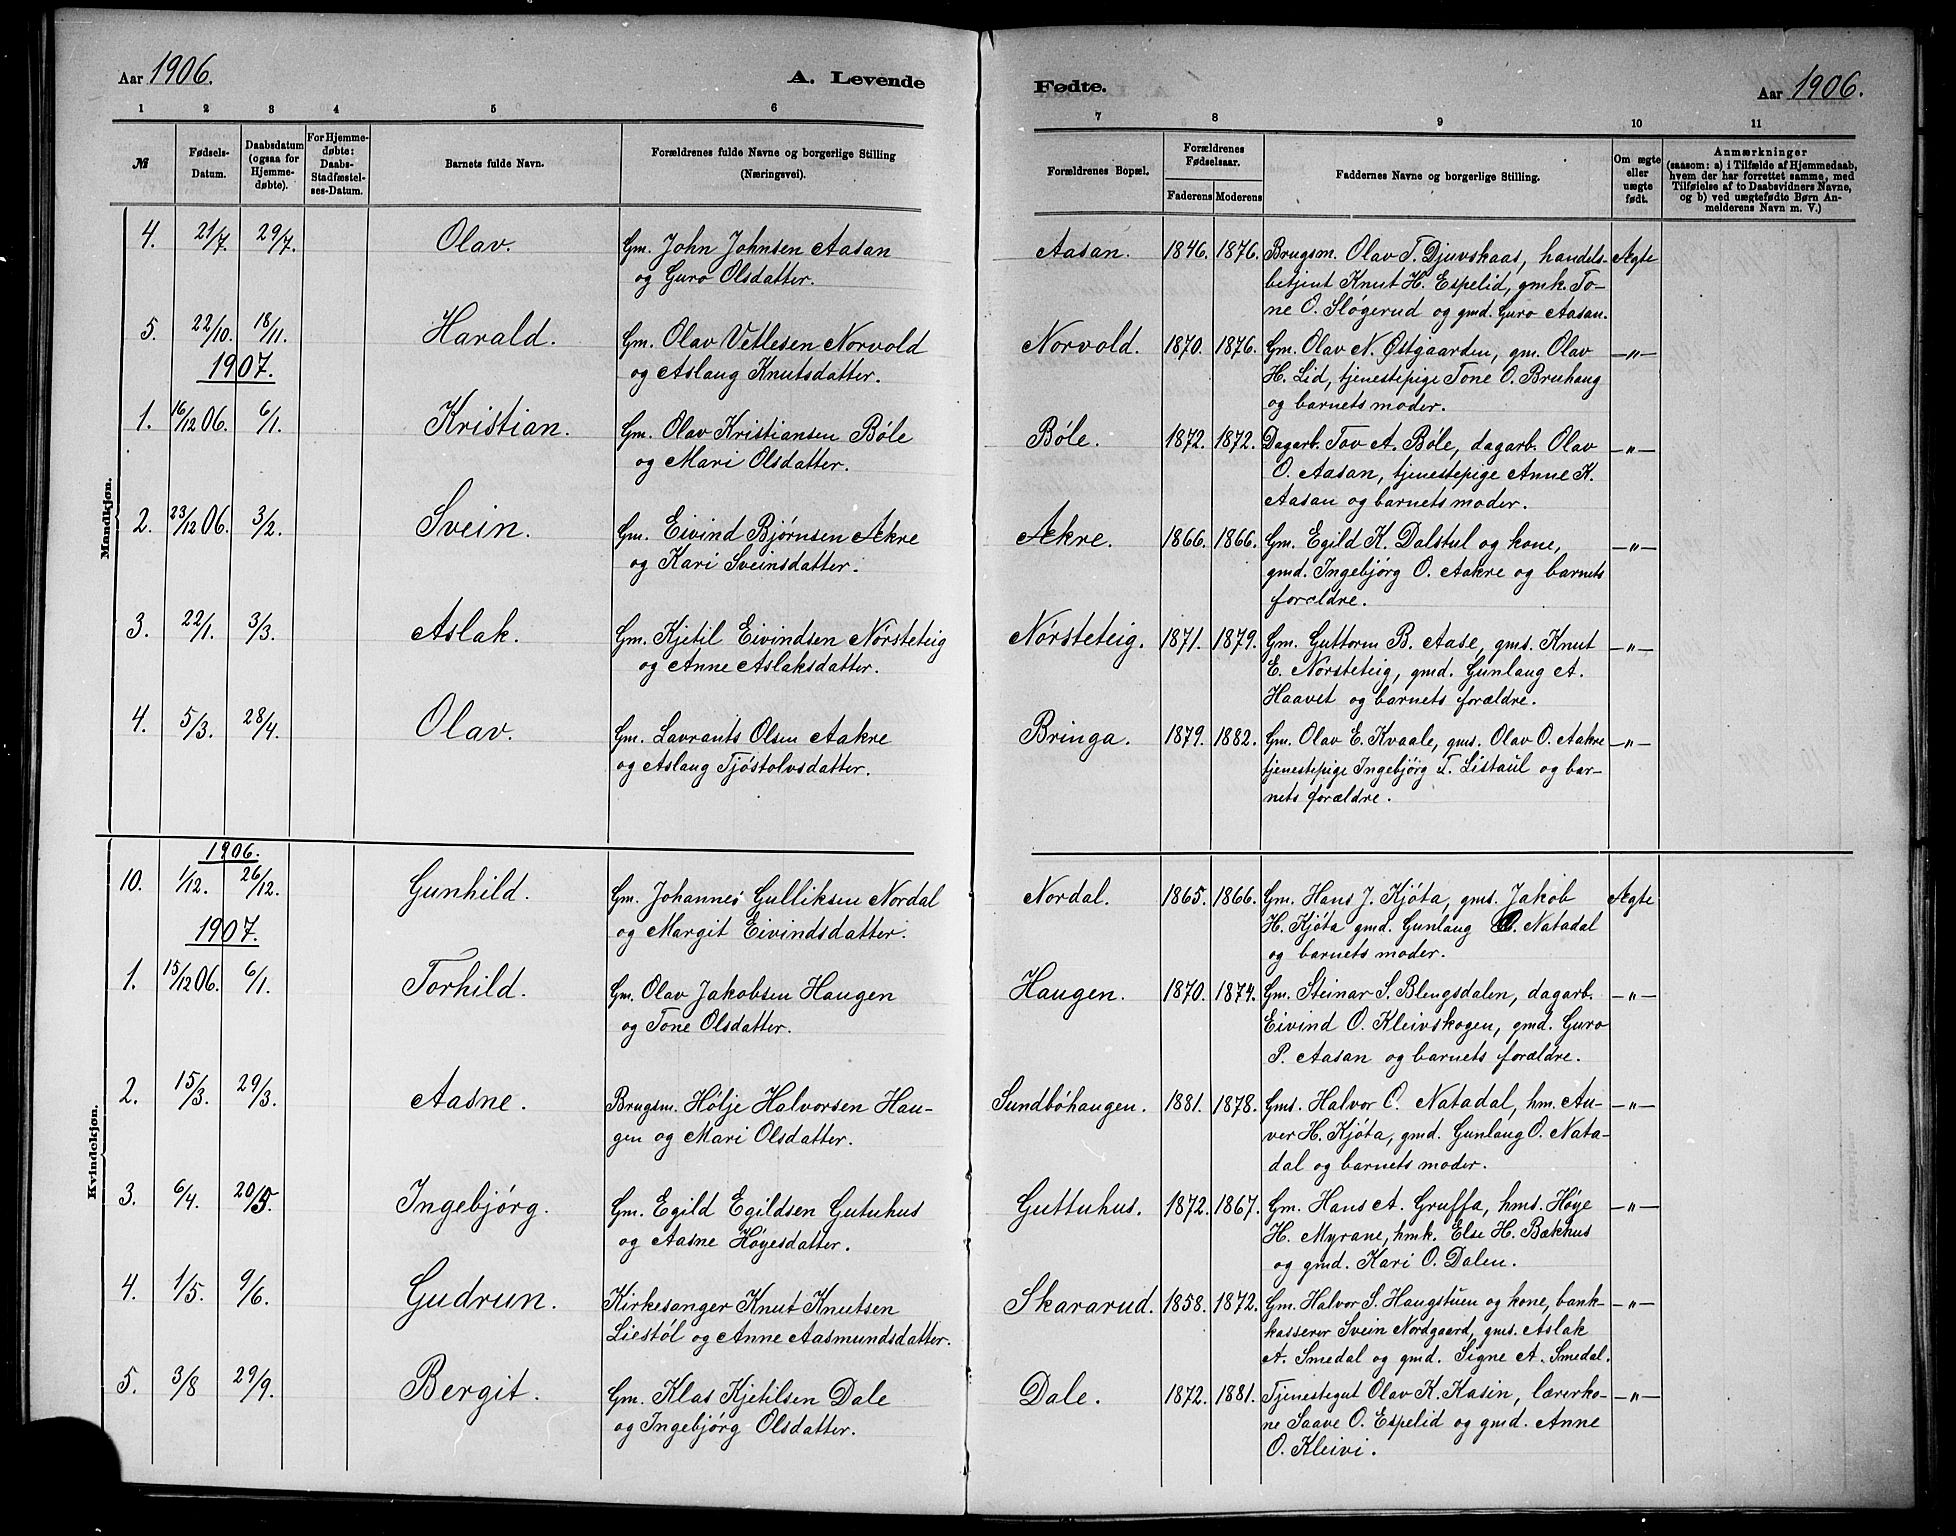 Aar 1906.
A. Levende
Fødte.
Aar 1906.
1 2 3 4 5 6 7 8 9 10 11
№
Fødsels-
Datum.
Daabsdatum
(ogsaa for
Hjemme-
døbte).
For Hjemme-
døbte:
Daabs-
Stadfæstel-
ses-Datum.
Barnets fulde Navn.
Forældrenes fulde Navne og borgerlige Stilling
(Næringsvei).
Forældrenes Bopæl.
Forældrenes
Fødselsaar.
Faderens Moderens
Faddernes Navne og borgerlige Stilling.
Om ægte
eller
uægte
født.
Anmærkninger
(saasom: a) i Tilfælde af Hjemmedaab,
hvem der har forrettet samme, med
Tilføielse af to Daabsvidners Navne,
og b) ved uægtefødte Børn An-
melderens Navn m. V.)
Mandkjøn.
4. 21/7. 29/7. Olav. Gm. John Johnsen Aasan
og Guro Olsdatter.
Aasan. 1846. 1876. Brugsm. Olav T. Djuvskaas, handels- Ægte
betjent Knut H. Espelid, gmk. To-
ne O. Sløgerud og gmd. Guro Aasan.
5. 22/10. 18/11. Harald. Gm. Olav Vetlesen Norvold
og Aslaug Knutsdatter.
Norvold. 1870. 1876. Gm. Olav N. Østgaarden, gm. Olav —„—
H. Lid, tjenestepige Tone O. Bruhaug
og barnets moder.
1907.
1. 16/12 06. 6/1. Kristian. Gm. Olav Kristiansen Bøle
og Mari Olsdatter.
Bøle. 1872. 1872. Dagarb. Tov A. Bøle, dagarb. Olav —„—
O. Aasan, tjenestepige Anne K.
Aasan og barnets moder.
2. 23/12 06. 3/2. Svein. Gm. Eivind Bjørnsen Ækre
og Kari Sveinsdatter.
Ækre. 1866. 1866. Gm. Egild K. Dalstul og kone, —„—
gmd. Ingebjørg O. Aakre og barnets
forældre.
3. 22/1. 3/3. Aslak. Gm. Kjetil Eivindsen Nørsteteig
og Anne Aslaksdatter.
Nørsteteig. 1871. 1879. Gm. Guttorm B. Aase, gms. Knut —„—
E. Nørsteteig, gmd. Gunlaug A.
Haavet og barnets forældre.
4. 5/3. 28/4. Olav. Gm. Lavrants Olsen Aakre
og Aslaug Tjøstolvsdatter.
Bringa. 1879. 1882. Gm. Olav E. Kvaale, gms. Olav O. Aakre —„—
tjenestepige Ingebjørg T. Listaul og bar-
nets forældre.
Kvindekjøn.
1906.
10. 1/12. 26/12. Gunhild. Gm. Johannes Gulliksen Nordal
og Margit Eivindsdatter.
Nordal. 1865. 1866. Gm. Hans J. Kjøta, gms. Jakob Ægte
H. Kjøta gmd. Gunlaug O. Natadal
og barnets moder.
1907.
1. 15/12 06. 6/1. Torhild. Gm. Olav Jakobsen Haugen
og Tone Olsdatter.
Haugen. 1870. 1874. Gm. Steinar S. Blengsdalen, dagarb. —„—
Eivind O. Kleivskogen, gmd. Guro
P. Aasan og barnets forældre.
2. 15/3. 29/3. Aasne. Brugsm. Hølje Halvorsen Hau-
gen og Mari Olsdatter.
Sundbøhaugen. 1881. 1878. Gms. Halvor O. Natadal, hm. Au- —„—
ver H. Kjøta, gmd. Gunlaug O. Nata-
dal og barnets moder.
3. 6/4. 20/5. Ingebjørg. Gm. Egild Egildsen Gutuhus
og Aasne Høyesdatter.
Guttuhus. 1872. 1867. Gm. Hans A. Gruffa, hms. Høye —„—
H. Myrane, hmk. Else H. Bækhus
og gmd. Kari O. Dalen.
4. 1/5. 9/6. Gudrun. Kirkesanger Knut Knutsen
Liestøl og Anne Aasmundsdatter.
Skararud. 1858. 1872. Gm. Halvor S. Haugstuen og kone, bank- —„—
kasserer Svein Nordgaard, gms. Aslak
A. Smedal og gmd. Signe A. Smedal.
5. 3/8 29/9. Bergit. Gm. Klas Kjetilsen Dale
og Ingebjørg Olsdatter.
Dale. 1872. 1881. Tjenestegut Olav K. Kasin, lærerko- —„—
ne Saave O. Espelid og gmd. Anne
O. Kleivi.